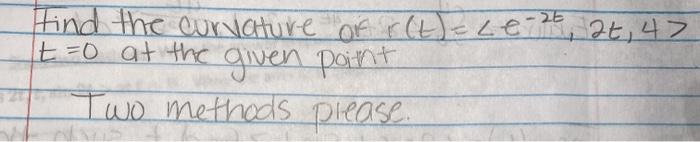 Find the curvature of r(t) = <e^-2t, 2t, 4>
t=0 at the given point
Two methods please.